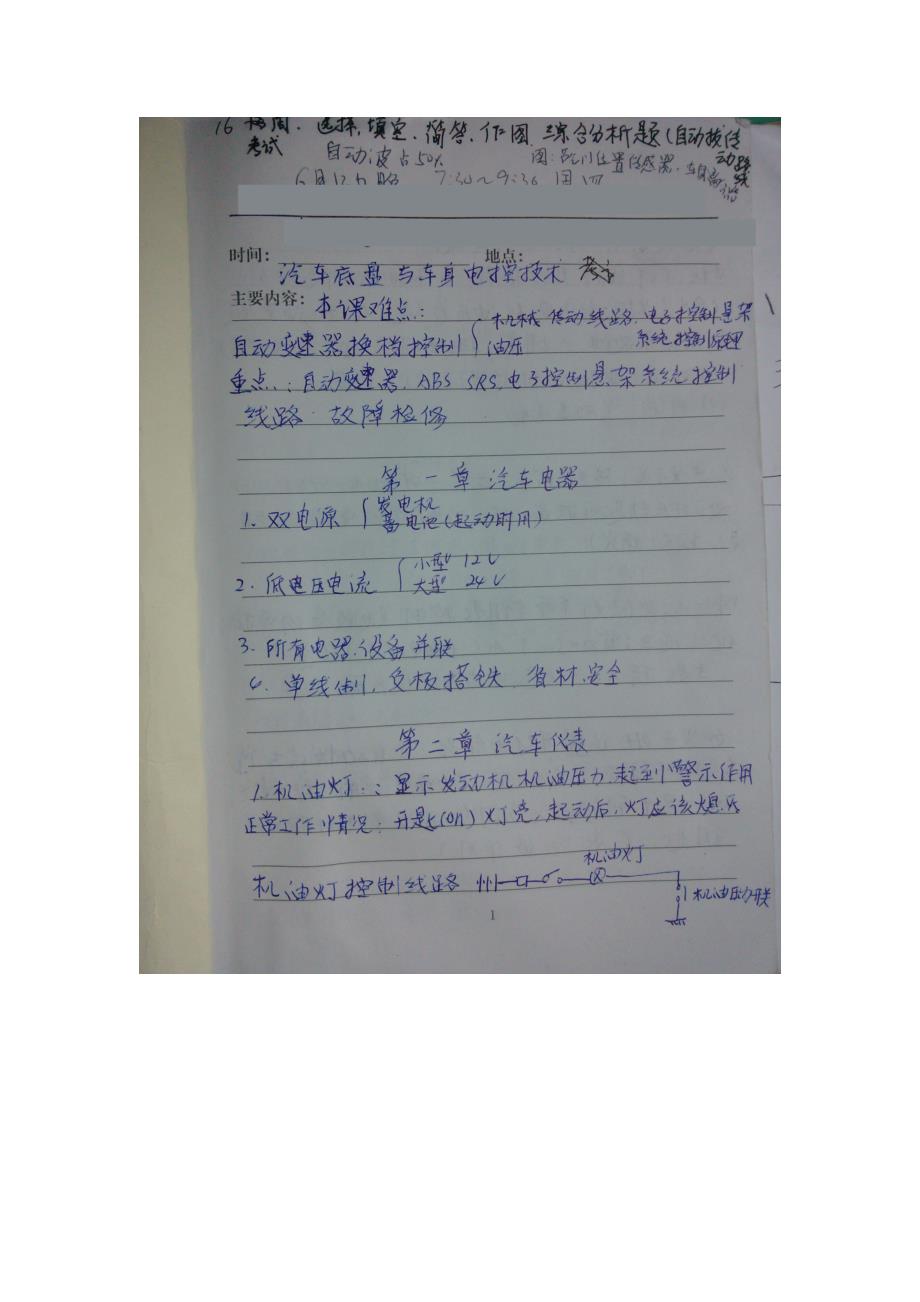 16周. 选择,填空.简答.作图.综合分析题(自动拨传动路线
考试
自动波占50% 图:节气门位置传感器.车身高
6月12日晚 7:30~9:30 周四
时间: 地点:
汽车底盘与车身电控技术 考试
主要内容: 本课难点:
自动变速器换档控制 { 机械传动线路.电子控制悬架系统控制原理
油压
重点:自动变速器.ABS SRS,电子控制悬架系统控制
线路 故障检修
第一章 汽车电器
1. 双电源 { 发电机
蓄电池(起动时用)
2. 低电压电流 { 小型 12V
大型 24V
3. 所有电器设备并联
4. 单线制,负极搭铁 省材,安全
第二章 汽车仪表
1. 机油灯:显示发动机机油压力.起到警示作用
正常工作情况:开关(on)灯亮,起动后,灯应该熄灭
机油灯
机油灯控制线路
机油压力开关
1